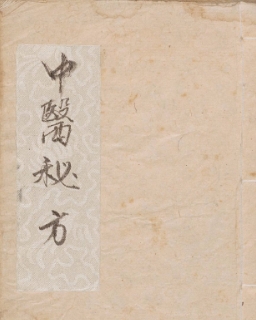 中醫秘方